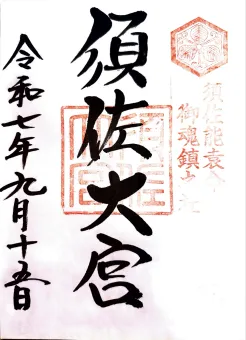 須佐能袁命
御魂鎮
須佐大宮
令和七年九月十五日